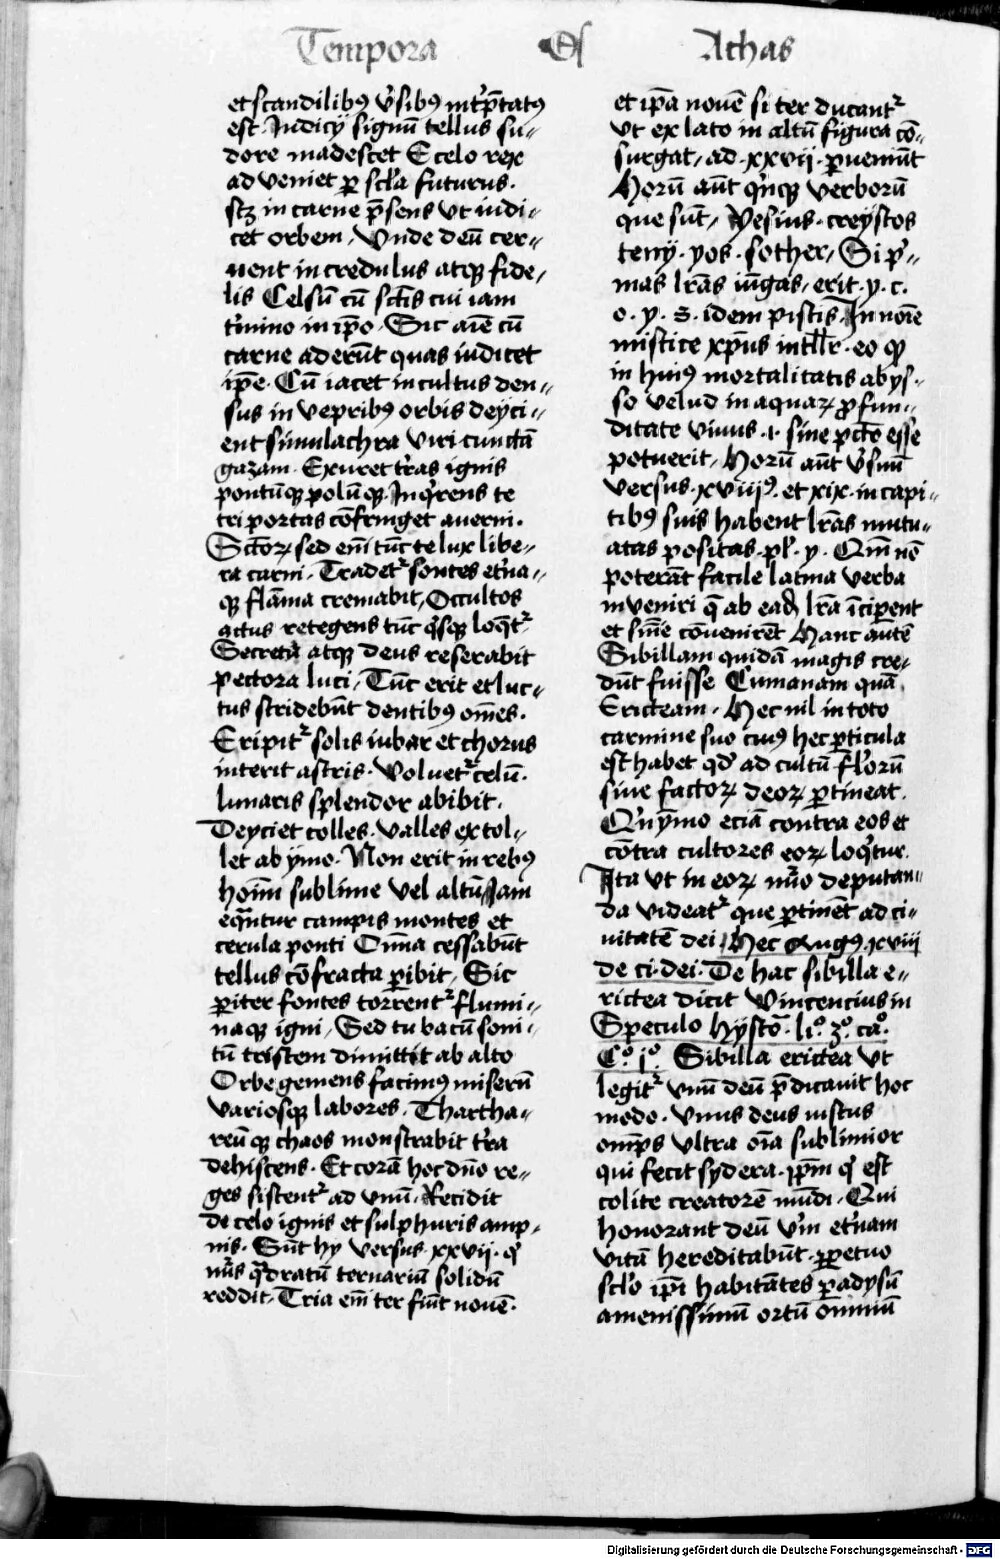 Tempora Os Achas
et scandilibꝫ v̉sibꝫ int̉p̄tatꝫ
est. Iudicÿ signū tellus su//
dore madescet E celo rex
ad veniet ꝑ sc̄la futurus.
scꝫ in carne p̄sens vt iudi//
cet orbem, Vnde deū cer//
nent incredulus atqꝫ fide/
lis Celsū cū sct̄is eui iam
t̉mino in ip̄o. Sic aīe cū
carne aderūt quas iudicet
ip̄e. Cū iacet incultus den//
sus in vepribꝫ orbis deÿci//
ent simulachra viri cunctā
gazam. Exuret tr̄as ignis
pontūqꝫ polūqꝫ. Inq̉rens te
tri portas cōfringet auerni.
Sct̄oꝝ sed em̄ tūc te lux libe//
ra carni. Tradetᷣ sontes et̉na//
qꝫ flāma cremabit, Occultos
actus retegens tūc q̉sqꝫ loq̄tᷣ
Secreta atqꝫ deus reserabit
pectora luci, Tūc erit et luc//
tus stridebūt dentibꝫ om̄es.
Eripitᷣ solis iubar et chorus
interit astris. Voluetᷣ celū.
lunaris splendor abibit.
Deyciet colles. valles extol//
let ab ÿmo. Non erit in rebꝫ
hoīm sublime vel altū, Iam
eq̄ntur campis montes et
cerula ponti Om̄a cessabūt
tellus cōfracta ꝑibit, Sic
ꝑiter fontes torrentᷣ flumi//
naqꝫ igni, Sed tu bacū soni//
tū tristem dimittit ab alto
Orbe gemens facimꝫ miserū
variosqꝫ labores. Thartha//
reūqꝫ chaos monstrabit tr̄a
dehiscens. Et corā hoc dn̄o re//
ges sistentᷣ ad vnū. Recidit
de celo ignis et sulphuris amp//
nis. Sūt hÿ versus. xxvij. q̉
nūs q̄dratū ternariū solidū
reddit, Tria em̄ ter fiūt nouē.
et ip̄a nouē si ter ducantᷣ
vt ex lato in altū figura cō//
surgat, ad. xxvij. ꝑueniūt
Horū aūt q̉nqꝫ verborū
que sūt, Yesius. creÿstos
tenÿ. yos. sother, Si p̉//
mas lr̄as iūgas, erit. y. c.
o. y. s. idem piscis. In noīe
mistice xp̄us intll̄r. eo ꝙ
in huiꝫ mortalitatis abys//
so velud in aquaꝝ ꝓfun//
ditate viuus .i. sine pctō esse
potuerit, Horū aūt v̉suū
versus. xviijꝫ. et xix. in capi//
tibꝫ suis habent lr̄as mutu//
atas positas. pl̉. y. Qm̄ nō
poterāt facile latina verba
inveniri q̄ ab eadē lr̄a īciperent
et sm̄e cōuenirēt Hanc aūtē
Sibillam quidā magis cre//
dūt fuisse Cumanam quā
Ericteam. Hec nil in toto
carmine suo cuiꝫ hec ꝑticula
est habet qd̉ ad cultū fl̉orū
siue factoꝝ deoꝝ ꝑtineat.
Q̉nÿmo eciā contra eos et
cōtra cultores eoꝝ loq̉tur.
Ita vt in eoꝝ nūo deputan//
da videatᷣ que ꝑtinēt ad ci//
uitatē dei Hec Augꝫ. xviij
de ci. dei. De hac sibilla e//
rictea dicit Vincencius in
Speculo hÿstō. li.º 3.º ca.º
C.º j.º Sibilla erictea vt
legitᷣ vnū deū p̄dicauit hoc
modo. Vnus deus iustus
om̄ps vltra oīa sublimior
qui fecit sydera. ip̄m q̉ est
colite creatorē mūdi. Qui
honorant deū v̉m et̉nam
vitā hereditabūt. ꝑpetuo
scl̉o ip̄i habitātes ꝑadysū
amenissimū ortū omniū
Digitalisierung gefördert durch die Deutsche Forschungsgemeinschaft - DFG